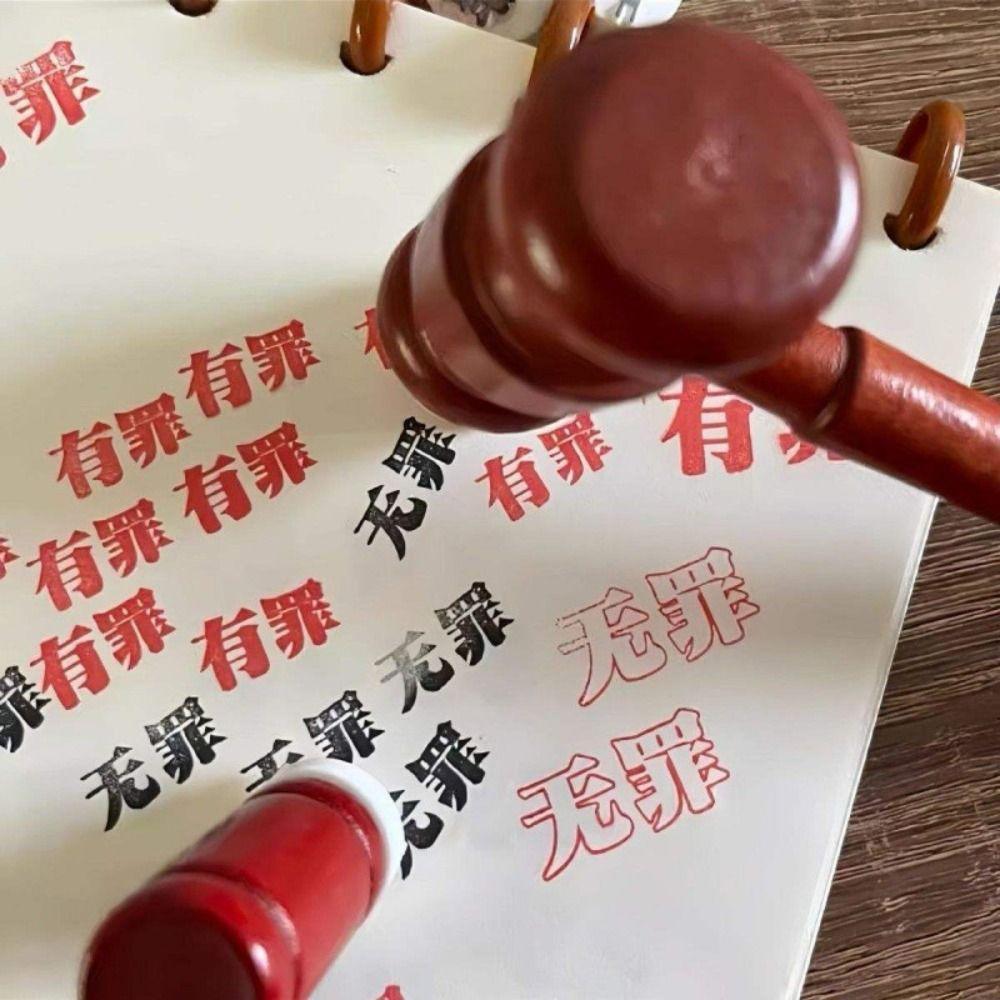 罪
有罪
有
有罪
有
有罪
无罪
有罪
有罪
有罪
无罪
无罪
有罪
有罪
罪
无罪
无罪
无罪
无罪